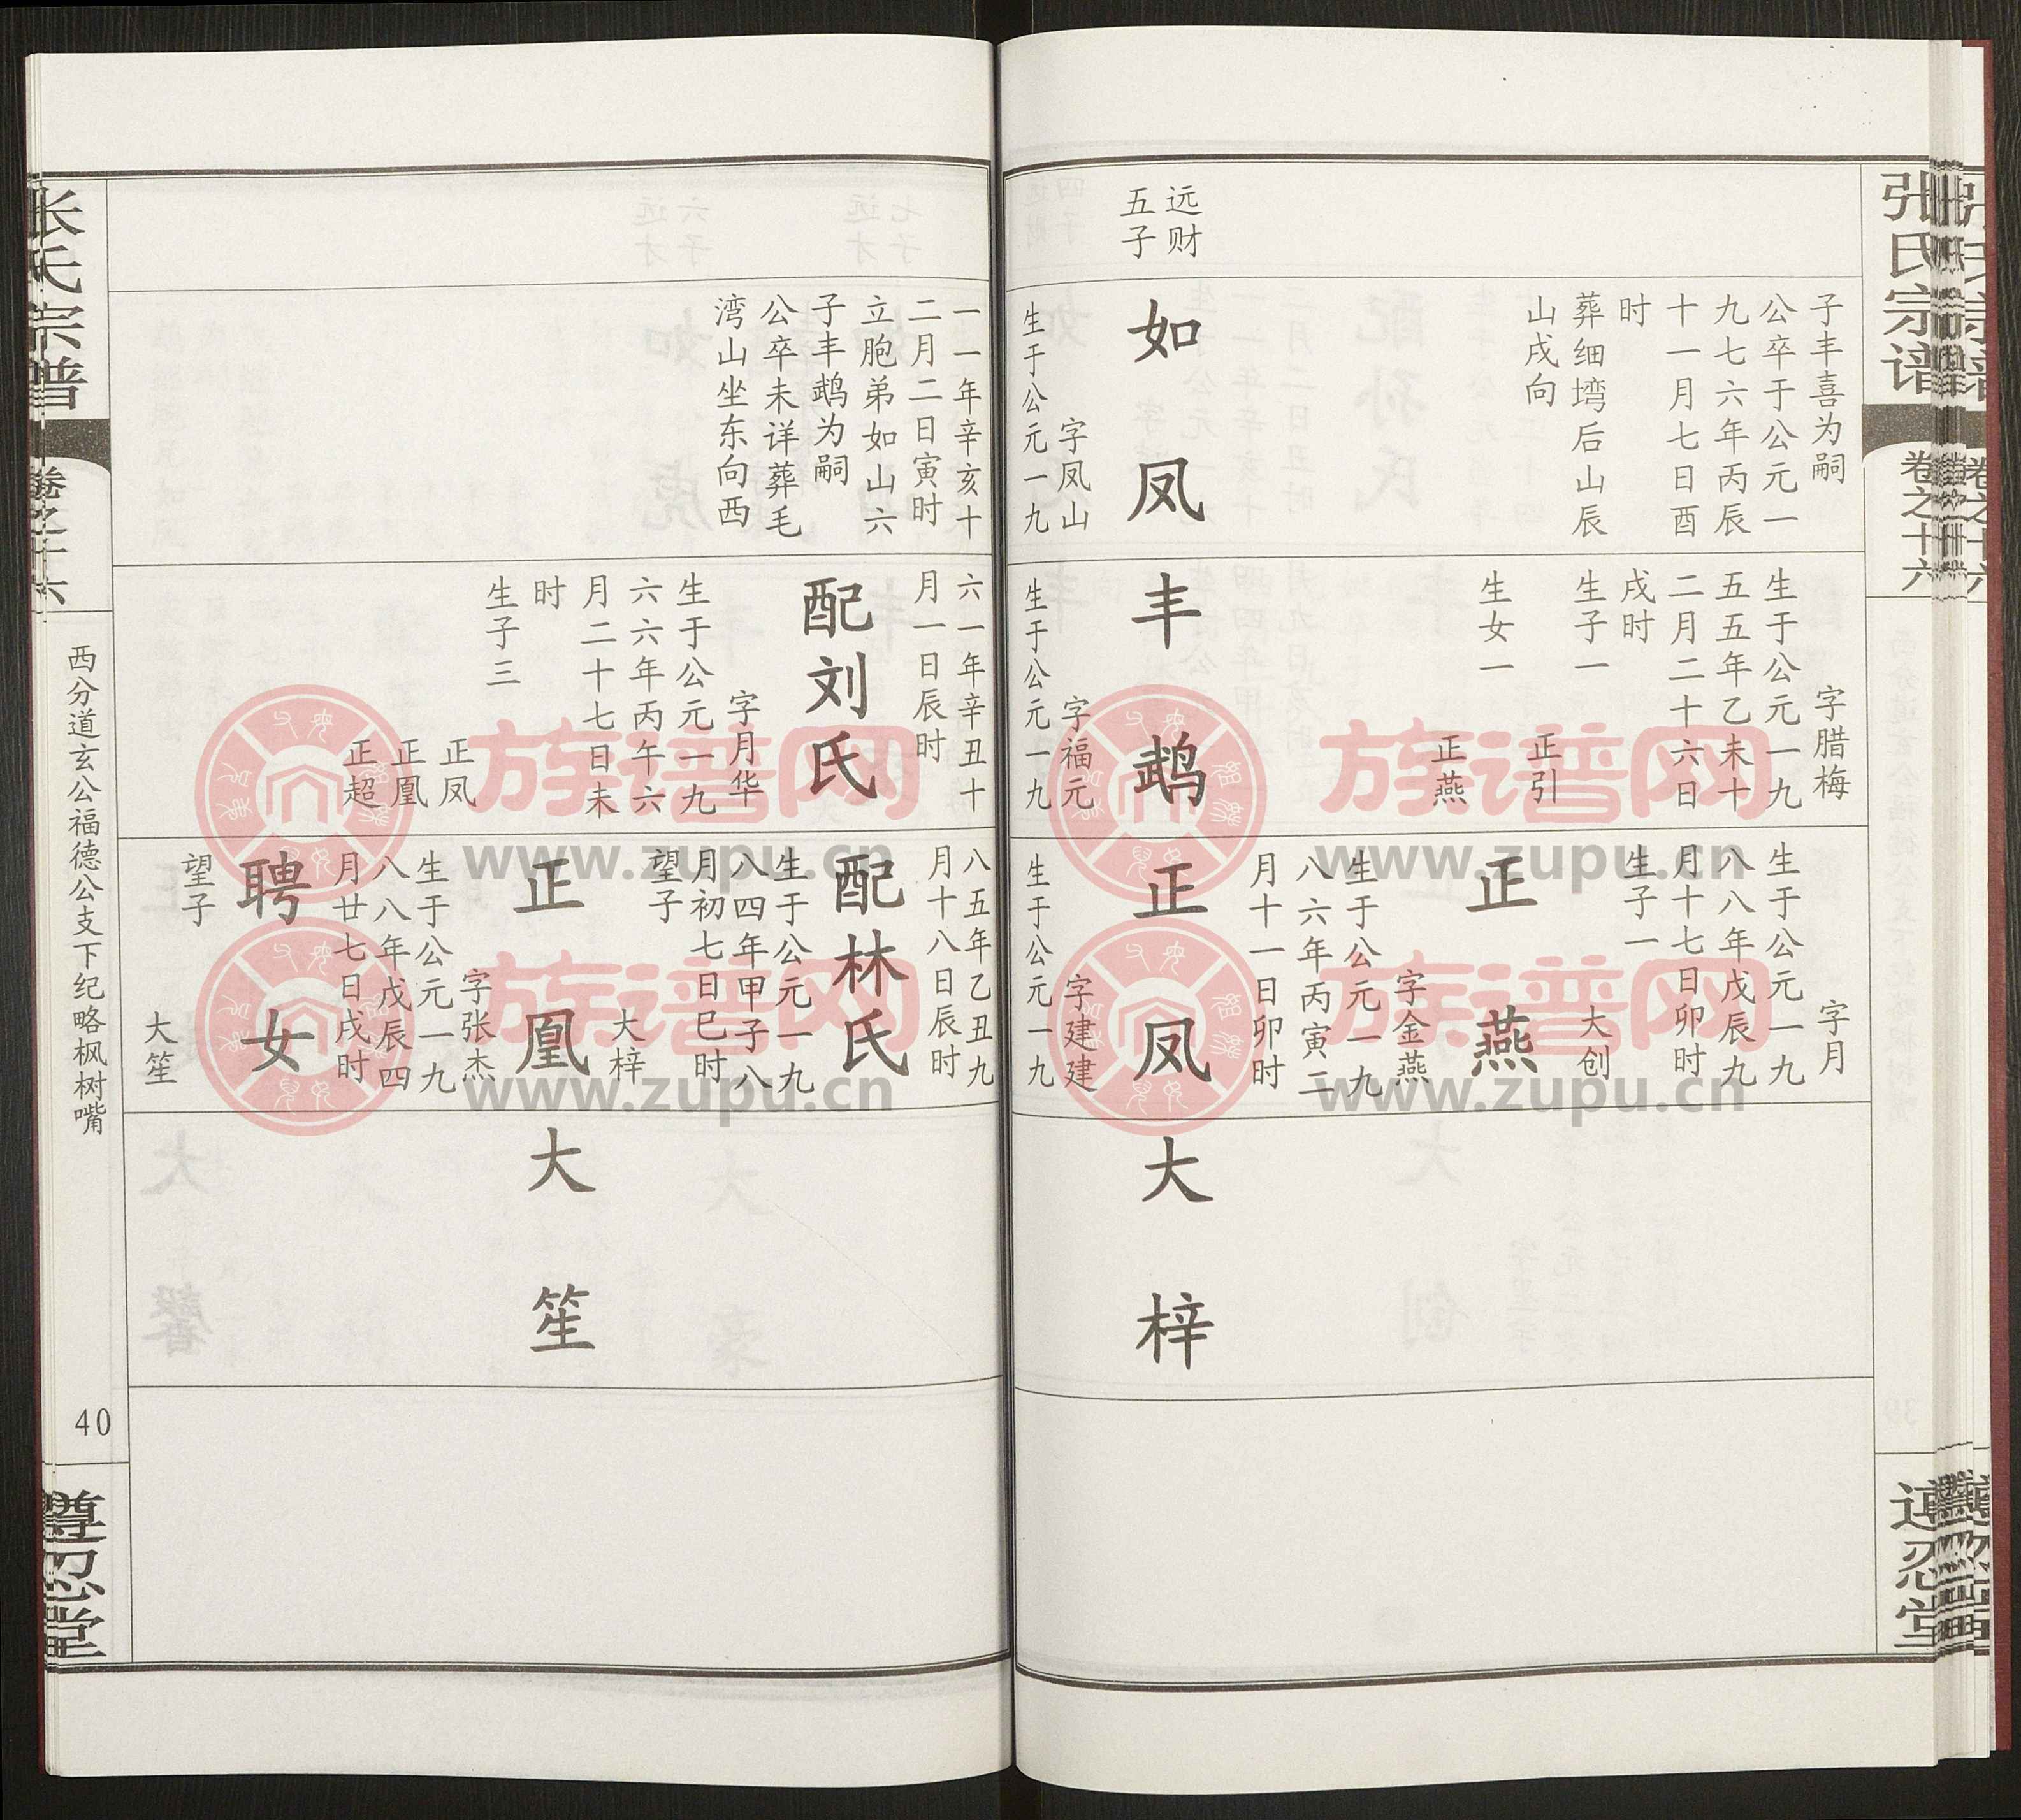 张氏宗谱
卷之十六
遵忍堂
远财
五子
子丰喜为嗣
公卒于公元一
九七六年丙辰
十一月七日酉
时
葬细塆后山辰
山戌向
如凤
字凤山
生于公元一九
字腊梅
生于公元一九
五五年乙未十
二月二十六日
戌时
生子一
正引
生女一
正燕
丰鹉
字福元
生于公元一九
字月
生于公元一九
八八年戊辰九
月十七日卯时
生子一
大创
正燕
字金燕
生于公元一九
八六年丙寅二
月十一日卯时
正凤
字建建
生于公元一九
大梓
一一年辛亥十
二月二日寅时
立胞弟如山六
子丰鹉为嗣
公卒未详葬毛
湾山坐东向西
六一年辛丑十
月一日辰时
配刘氏
字月华
生于公元一九
六六年丙午六
月二十七日未
时
生子三
正凤
正凰
正超
八五年乙丑九
月十八日辰时
配林氏
生于公元一九
八四年甲子八
月初七日巳时
望子
大梓
正凰
字张杰
生于公元一九
八八年戊辰四
月廿七日戌时
聘女
望子
大笙
大笙
张氏宗谱
卷之十六
西分道玄公福德公支下纪略枫树嘴
40
遵忍堂
族谱网
www.zupu.cn
族谱网
www.zupu.cn
族谱网
www.zupu.cn
族谱网
www.zupu.cn